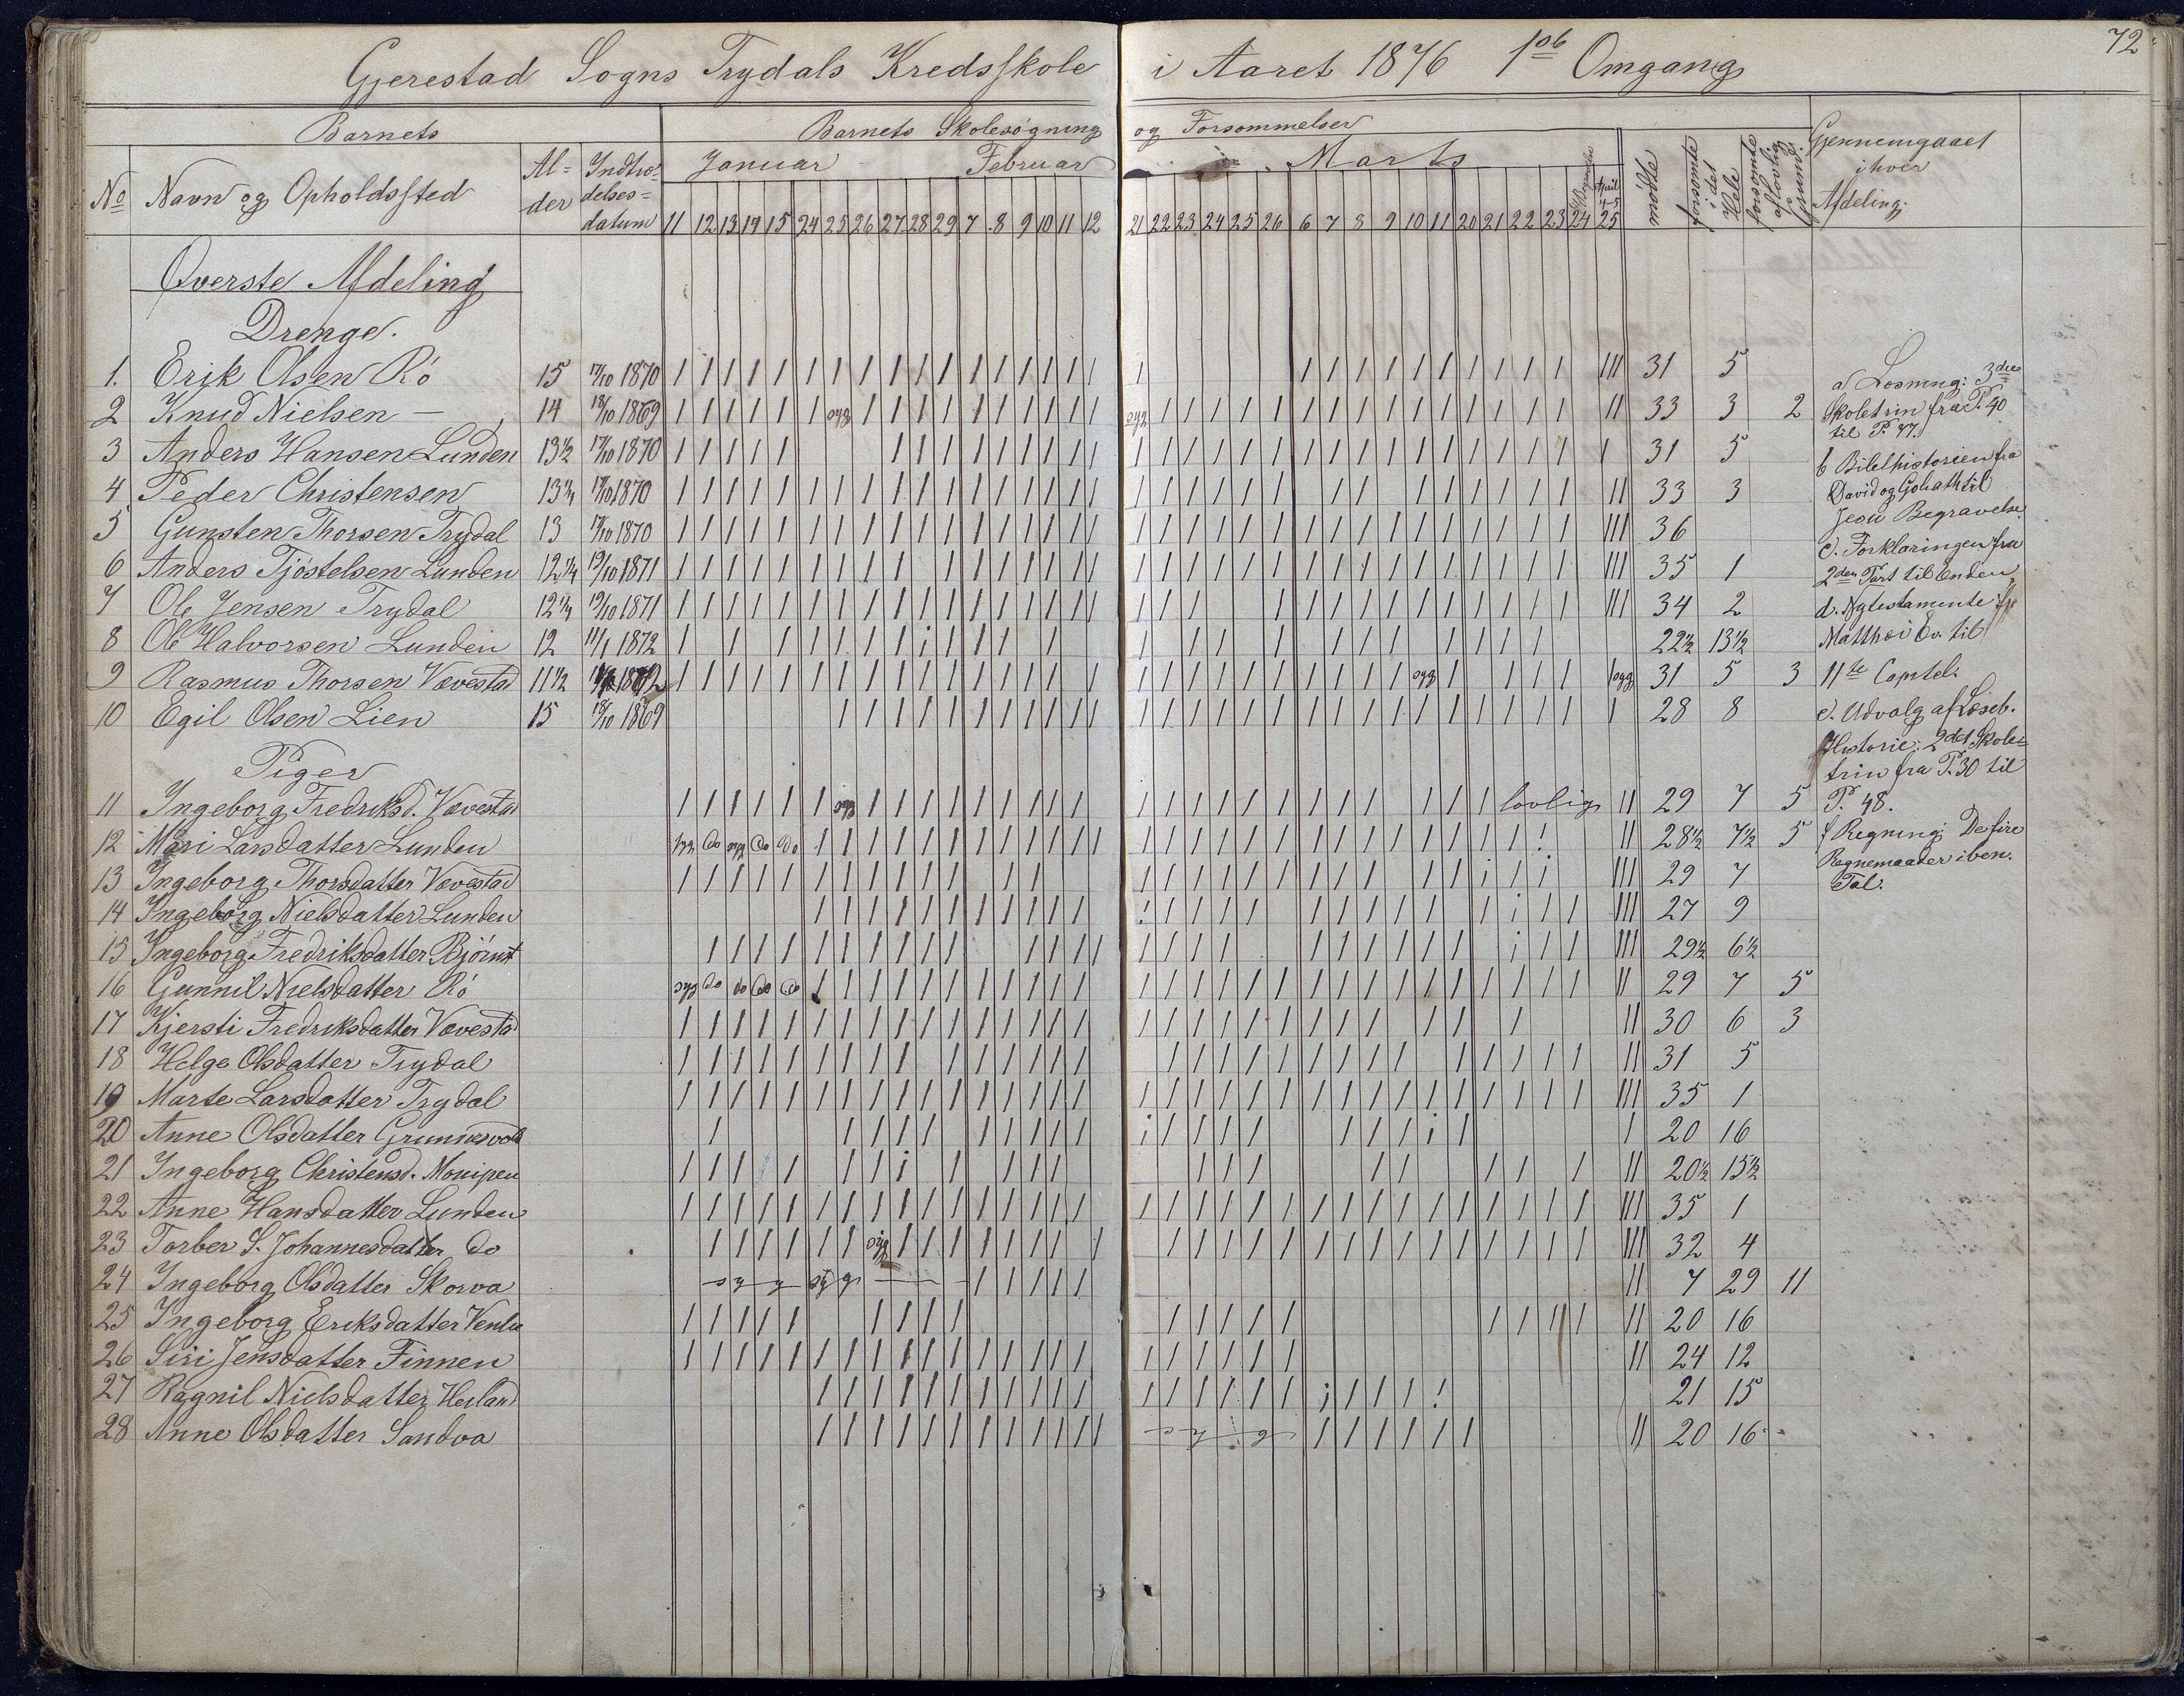 Gjerestad Sogns Trydals Kredsskole i Aaret 1876 1ste Omgang 72
Barnets Barnets Skolesøgning og Forsømmelser
No Navn og Opholdssted Al=der Indtræ=delses=datum Januar Februar Marts April mødte forsømte i det Hele forsømte af lovlig Grund. Gjennemgaaet i hver Afdeling.
11 12 13 14 15 24 25 26 27 28 29 7 8 9 10 11 12 21 22 23 24 25 26 6 7 8 9 10 11 20 21 22 23 24 25
Øverste Afdeling
Drenge.
1. Erik Olsen Rö 15 17/10 1870 31 5
2 Knud Nielsen — 14 18/10 1869 syg syg 33 3 2
3 Anders Hansen Lunden 13½ 17/10 1870 31 5
4 Peder Christensen 13¼ 17/10 1870 33 3
5 Gunsten Thorsen Trydal 13 17/10 1870 36
6 Anders Tjöstelsen Lunden 12¼ 19/10 1871 35 1
7 Ole Jensen Trydal 12¼ 19/10 1871 34 2
8 Ole Halvorsen Lunden 12 11/1 1872 22½ 13½
9 Rasmus Thorsen Vævestad 11½ 1872 syg syg 31 5 3
10 Egil Olsen Lien 15 18/10 1869 28 8
Piger
11 Ingeborg Fredriksd. Vævestad syg lovlig 29 7 5
12 Mari Larsdatter Lunden syg do syg do do 28½ 7½ 5
13 Ingeborg Thorsdatter Vævestad 29 7
14 Ingeborg Nielsdatter Lunden 27 9
15 Ingeborg Fredriksdatter Bjørnt 29½ 6½
16 Gunnil Nielsdatter Rö syg do do do do 29 7 5
17 Kjersti Fredriksdatter Vævestad 30 6 3
18 Helge Olsdatter Trydal 31 5
19 Marte Larsdatter Trydal 35 1
20 Anne Olsdatter Grunnesvold 20 16
21 Ingeborg Christensd. 20½ 15½
22 Anne Hansdatter Lunden 35 1
23 Torber S. Johannesdatter do syg 32 4
24 Ingeborg Olsdatter Skorva syg 7 29 11
25 Ingeborg Eriksdatter 20 16
26 Siri Jensdatter Finnen 24 12
27 Ragnil Nielsdatter Heiland 21 15
28 Anne Olsdatter Sandva 20 16
a Læsning: 3die
Skoletrin fra P. 40
til P. 47.
b Bibelhistorien fra
David og Goliath til
Jesu Begravelse
c. Forklaringen fra
2den Part til Enden
d. Nytestamente fr
Matthæi Ev. til
11te Capitel.
e. Udvalg af Læseb.
Historie: 2det Skole=
trin fra P. 30 til
P. 48.
f Regning: De fire
Regnemaader i ben.
Tal.